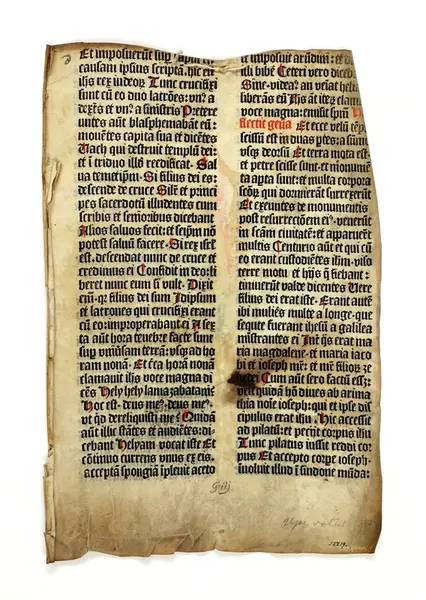 Et imposuerūt sup caput ei⁹
causam ipsius scriptā. hic est
ihs rex iudeoꝝ Tunc crucifixi
sunt cū eo duo latrōes: vn⁹ a
dexṫs et vn⁹ a sinistris Pretere
ūtes aūt blasphemabāt eū:
mouētes capita sua et dicētes
Uach qui destruit templū dei:
et ī triduo illd reedificat. Sal
ua temetipm̄. Si filius dei es:
descende de cruce Silr̄ et princi
pes sacerdotū illudentes cum
scribis et senioribus dicebant
Alios saluos fecit: et seip̄m nō
potest saluū facere. Si rex isrl̄
est, descendat nunc de cruce et
credimus ei Confidit in deo: li
beret nunc eum si vult. Dixit
eīm̄. qꝛ filius dei sum Idipsum
et latrones qui crucifixi erant
cū eo: improperabant ei A sex
ta aūt hora tenebre facte sunt
sup vniūsam terrā: vsqꝫ ad ho
ram nonā. Et c̄ca horā nonā
clamauit ihs voce magna di
cēs Hely hely lamazabatani?
Hoc est. deus me⁹. deus me⁹.
vt qd dereliquisti me? Quidā
aūt illic stātes et audiētes: di
cebant Helyam vocat iste Et
cōtinuo currens vnus ex eis.
acceptā spongiā īpleuit aceto
et imposuit arūdini: et d
illi bibē Ceteri vero diceb
Sine. videā⁹ an veīat hely
liberās eū Ihs āt iteꝝ clam
voce magna: emisit spm̄
flectit genua Et ecce velū tēp
scissū est in duas ptes: a sūm
vsqꝫ deorsū Et terra mota est:
et petre scisse sunt. et monumē
ta apta sunt: et multa corpora
scōꝝ qui dormierāt surrexerūt
Et exeuntes de monumentis
post resurrectōem ei⁹. venerūt
in scām ciuitatē: et apparuerūt
multis Centurio aūt et qui cū
eo erant custodiētes ihm. viso
terre motu et hijs q̄ fiebant:
timuerūt valde dicentes Uere
filius dei erat iste. Erant autē
ibi mulieꝛ multe a longe. que
secute fuerant ihesū a galilea
mīstrantes ei Int̄ q̄s erat ma
ria magdalene: et maria iacobi
et ioseph mr̄: et mr̄ filioꝝ ze
bedei Cum aūt sero factū esꝫ:
venit quidā hō diues ab arima
thia noīe ioseph: qui et ipse di
scipulus erat ihu. Hic accessit
ad pilatū: et petijt corpus ihu
Tunc pilatus iussit reddi cor
pus Et accepto corpe ioseph.
inuoluit illud ī sindone mūda: